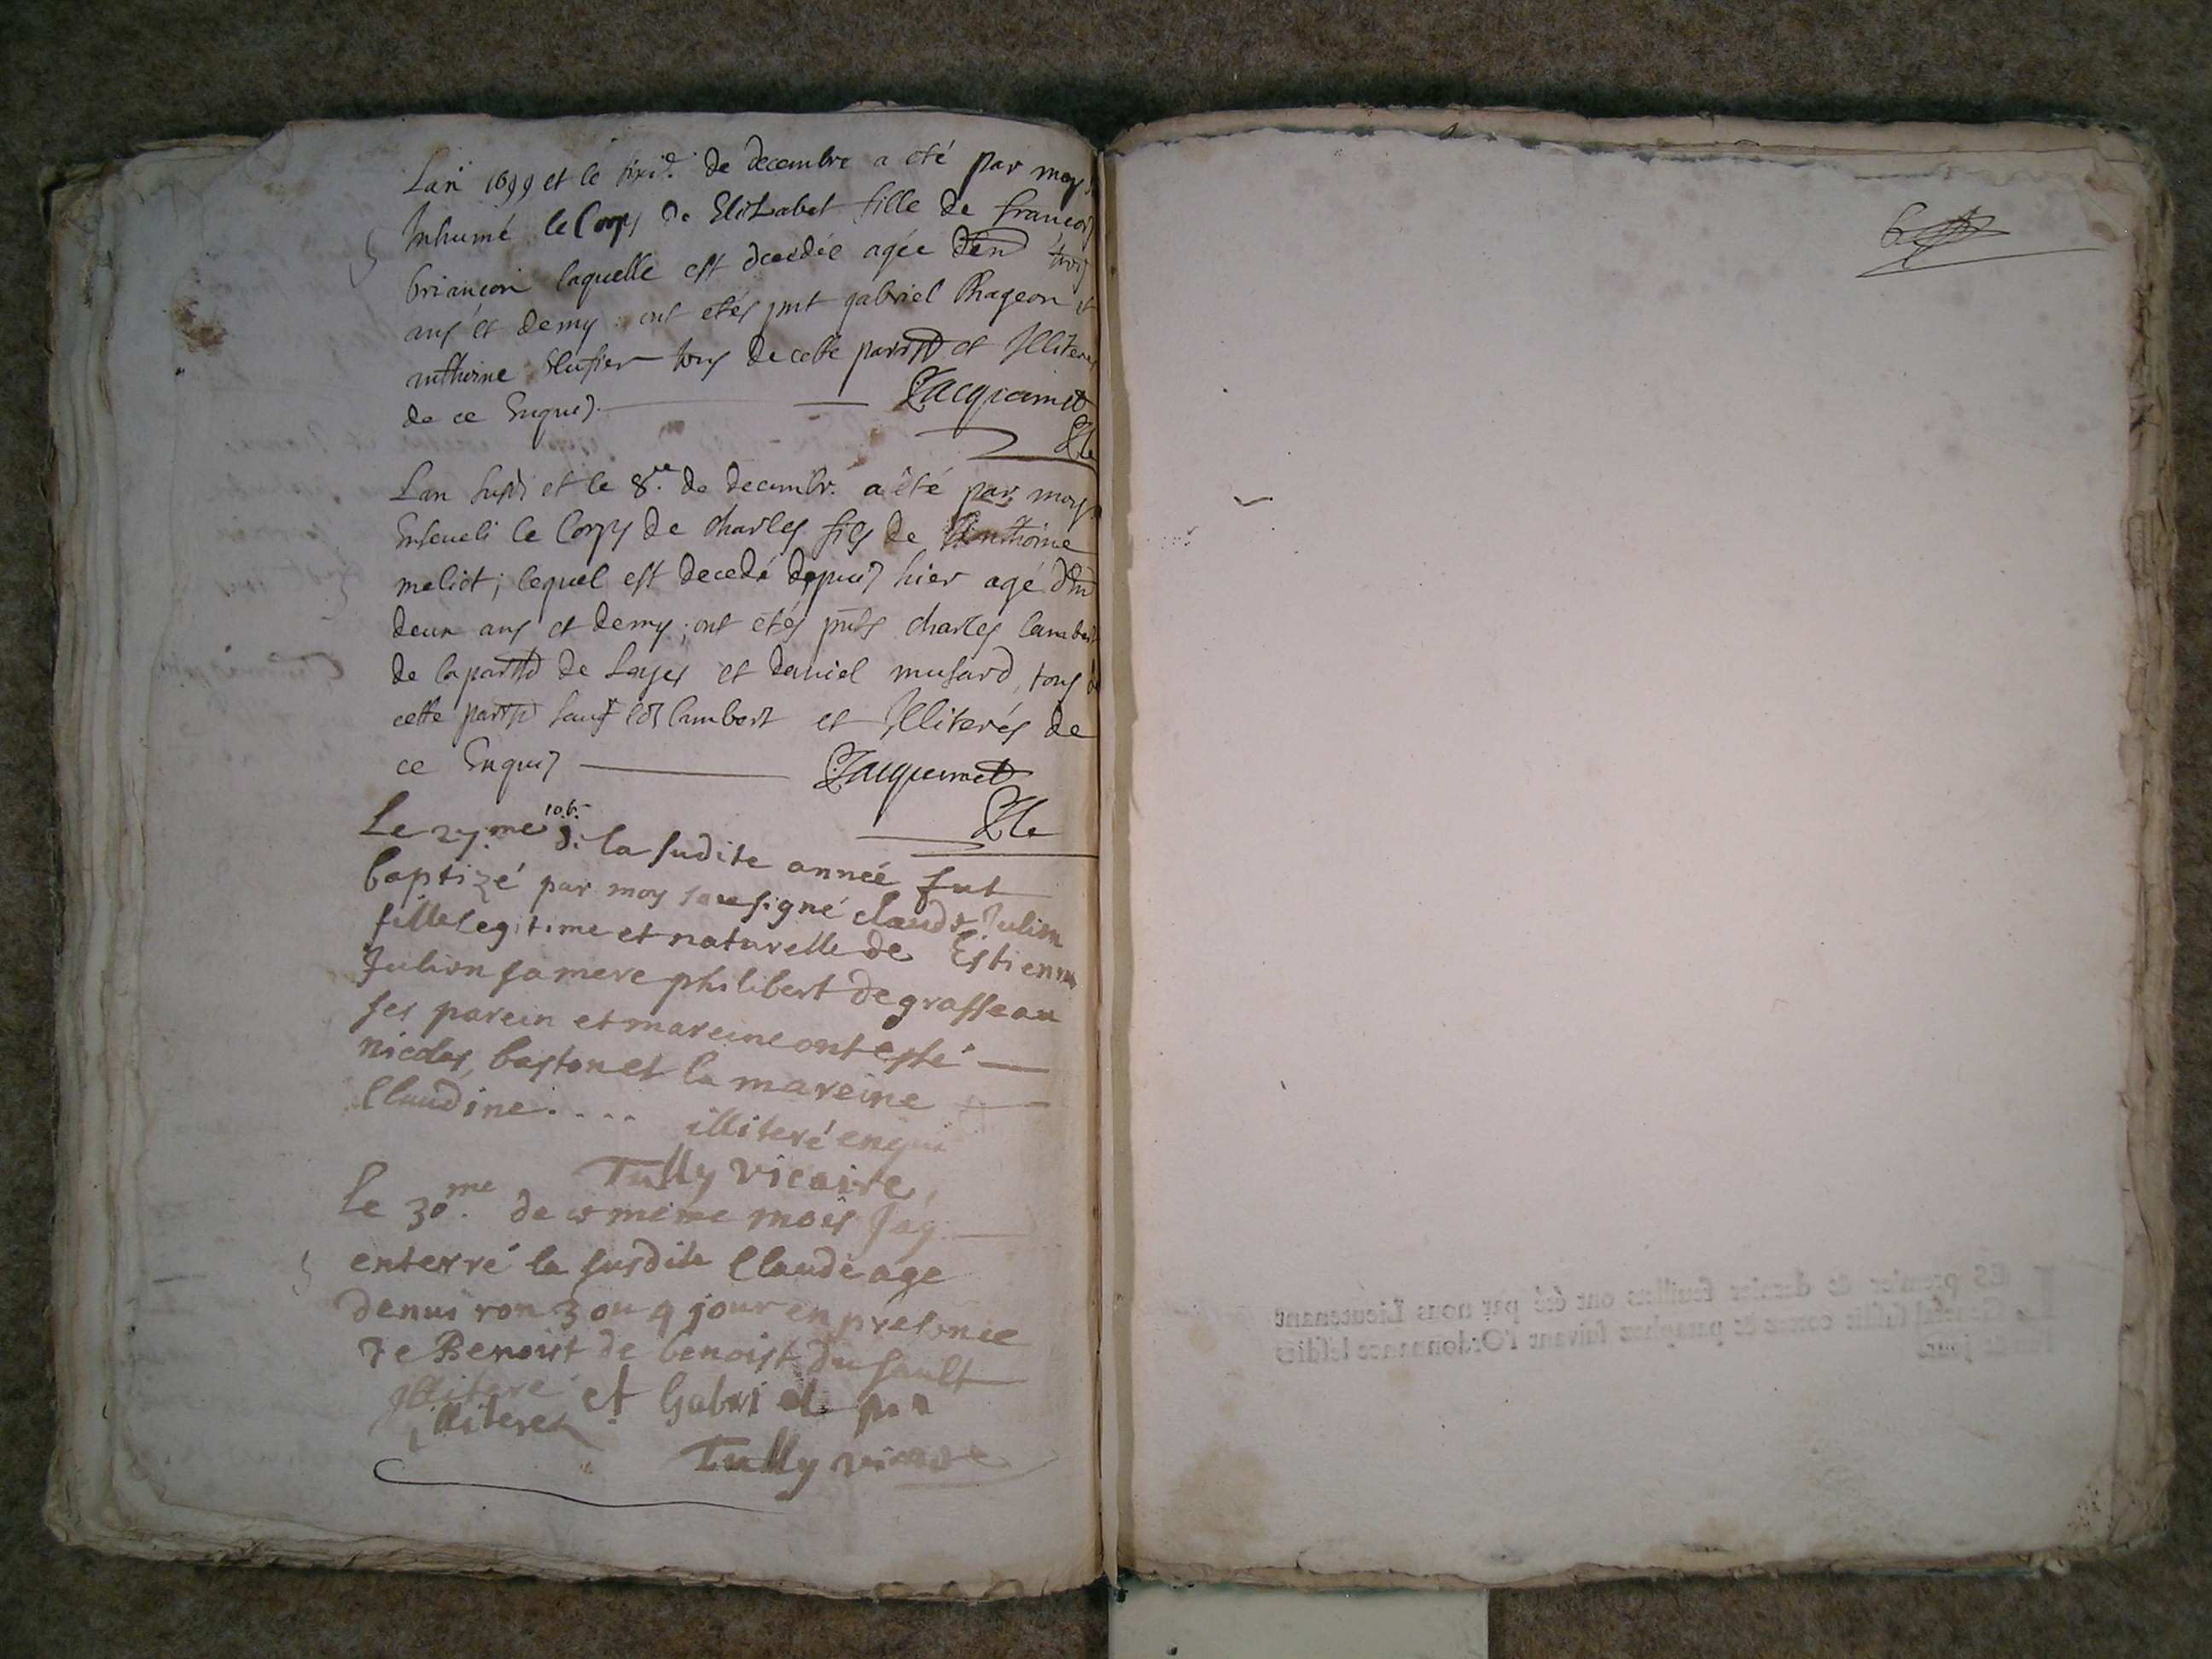 Lan 1699 et le sixi.e de decembre a été par moy
Inhumé le Corps de Elizabet fille de francois
briancon laquelle est decedée agée d'en trois
ans et demy : ont étés pnt gabriel Rageon et
anthoine tous de cette parisse et Illiteres
de ce Enquis Jacquemet
Lan susdi et le 8.me de decembr. a été par moy
Enseueli le Corps de charles fils de Anthoine
meliot ; lequel est decedé depuis hier agé d'en
deux ans et demy ; ont étés pnts charles lambert
de la parisse de Layes et daniel musard, tous de
cette parisse sauf led lambert et Illiterés de
ce Enquis Jacquemet
Le 27.me 10b. d. la sudite année fut
baptizé par moy sousigné claude Julion
fille legitime et naturelle de Estienne
Julion sa mere philibert degrasseau
ses parein et mareine ont esté
nicolas, baston et la mareine
Claudine . . . . illiteré enqui
Tully vicaire,
Le 30.me de ce meme mois Jay
enterré la susdite Claude age
denuiron 3 ou 4 jour en presence
de Benoist de benoist du sault
Illitere et Gabriel
illiteres
Tully vicaire
LEs premier & dernier feuillets ont été par nous Lieutenant
General susdit cottez & paraphez suivant l'Ordonnance lesdits
jour